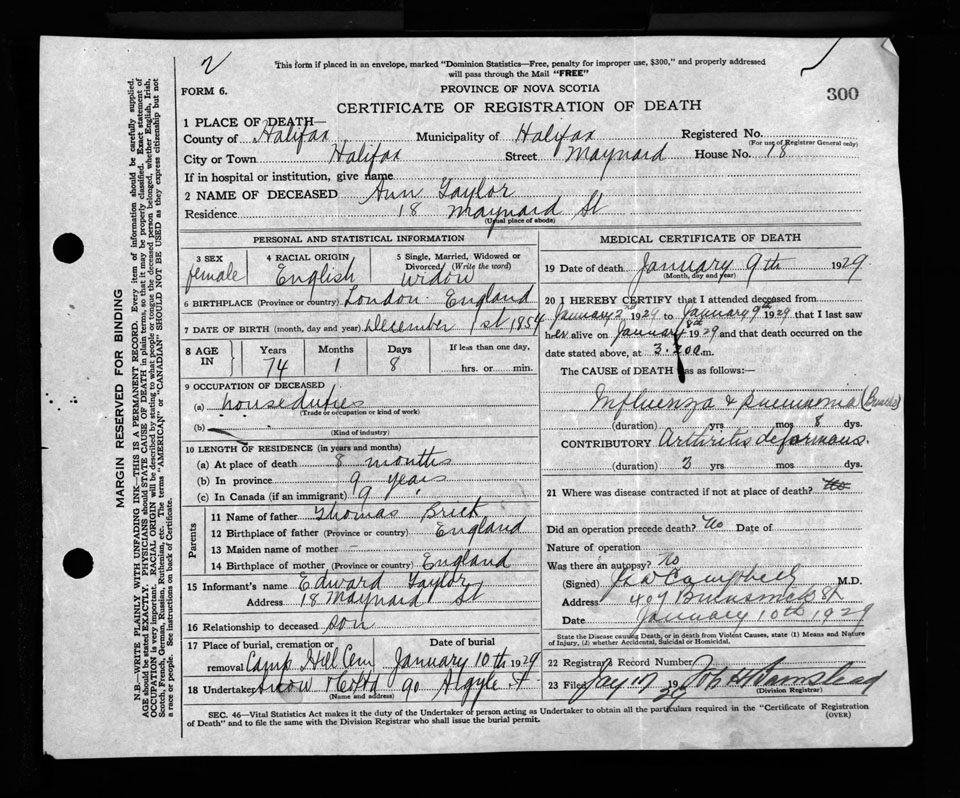 2
This form if placed in an envelope, marked "Dominion Statistics—Free, penalty for improper use, $300," and properly addressed
will pass through the Mail "FREE"
FORM 6.
PROVINCE OF NOVA SCOTIA
300
CERTIFICATE OF REGISTRATION OF DEATH
1 PLACE OF DEATH—
County of Halifax Municipality of Halifax Registered No.
(For use of Registrar General only)
City or Town Halifax Street Maynard House No. 18
If in hospital or institution, give name
2 NAME OF DECEASED Ann Taylor
Residence 18 Maynard St
(Usual place of abode)
PERSONAL AND STATISTICAL INFORMATION
3 SEX female
4 RACIAL ORIGIN English
5 Single, Married, Widowed or Divorced (Write the word) widow
6 BIRTHPLACE (Province or country) London England
7 DATE OF BIRTH (month, day and year) December 1st 1854
8 AGE IN Years Months Days If less than one day,
74 1 8 hrs. or min.
9 OCCUPATION OF DECEASED
(a) houseduties
(Trade or occupation or kind of work)
(b)
(Kind of industry)
10 LENGTH OF RESIDENCE (in years and months)
(a) At place of death 8 months
(b) In province 9 years
(c) In Canada (if an immigrant) 9 "
Parents
11 Name of father Thomas Brick
12 Birthplace of father (Province or country) England
13 Maiden name of mother –
14 Birthplace of mother (Province or country) England
15 Informant's name Edward Taylor
Address 18 Maynard St
16 Relationship to deceased son
17 Place of burial, cremation or removal Camp Hill Cem Date of burial January 10th 1929
18 Undertaker Snow & Co Ltd 90 Argyle St
(Name and address)
MEDICAL CERTIFICATE OF DEATH
19 Date of death January 9th 1929.
(Month, day and year)
20 I HEREBY CERTIFY that I attended deceased from
January 2nd 1929 to January 9th 1929 that I last saw
her alive on January 8th 1929 and that death occurred on the
date stated above, at 3. a.m.
The CAUSE of DEATH was as follows:—
Influenza & Pneumonia
(duration) yrs. mos. 8 dys.
CONTRIBUTORY Arthritis deformans.
(duration) 3 yrs mos dys.
21 Where was disease contracted if not at place of death?
Did an operation precede death? No Date of
Nature of operation
Was there an autopsy? No
(Signed) Campbell M.D.
Address 407 Brunswick St
Date January 10th 1929
State the Disease causing Death, or in death from Violent Causes, state (1) Means and Nature
of Injury, (2) whether Accidental, Suicidal or Homicidal.
22 Registrar's Record Number
23 Filed Jany 17 19
(Division Registrar)
SEC. 46—Vital Statistics Act makes it the duty of the Undertaker or person acting as Undertaker to obtain all the particulars required in the "Certificate of Registration
of Death" and to file the same with the Division Registrar who shall issue the burial permit.
(OVER)
MARGIN RESERVED FOR BINDING
N.B.—WRITE PLAINLY WITH UNFADING INK—THIS IS A PERMANENT RECORD. Every item of information should be carefully supplied.
AGE should be stated EXACTLY. PHYSICIANS should STATE CAUSE OF DEATH in plain terms, so that it may be properly classified. Exact statement of
OCCUPATION is very important. RACIAL ORIGIN will be described by stating to what people or tongue the deceased person belonged, whether English, Irish,
Scotch, French, German, Russian, Ruthenian, etc. The terms "AMERICAN" or "CANADIAN" SHOULD NOT BE USED as they express citizenship but not
a race or people. See instructions on back of Certificate.